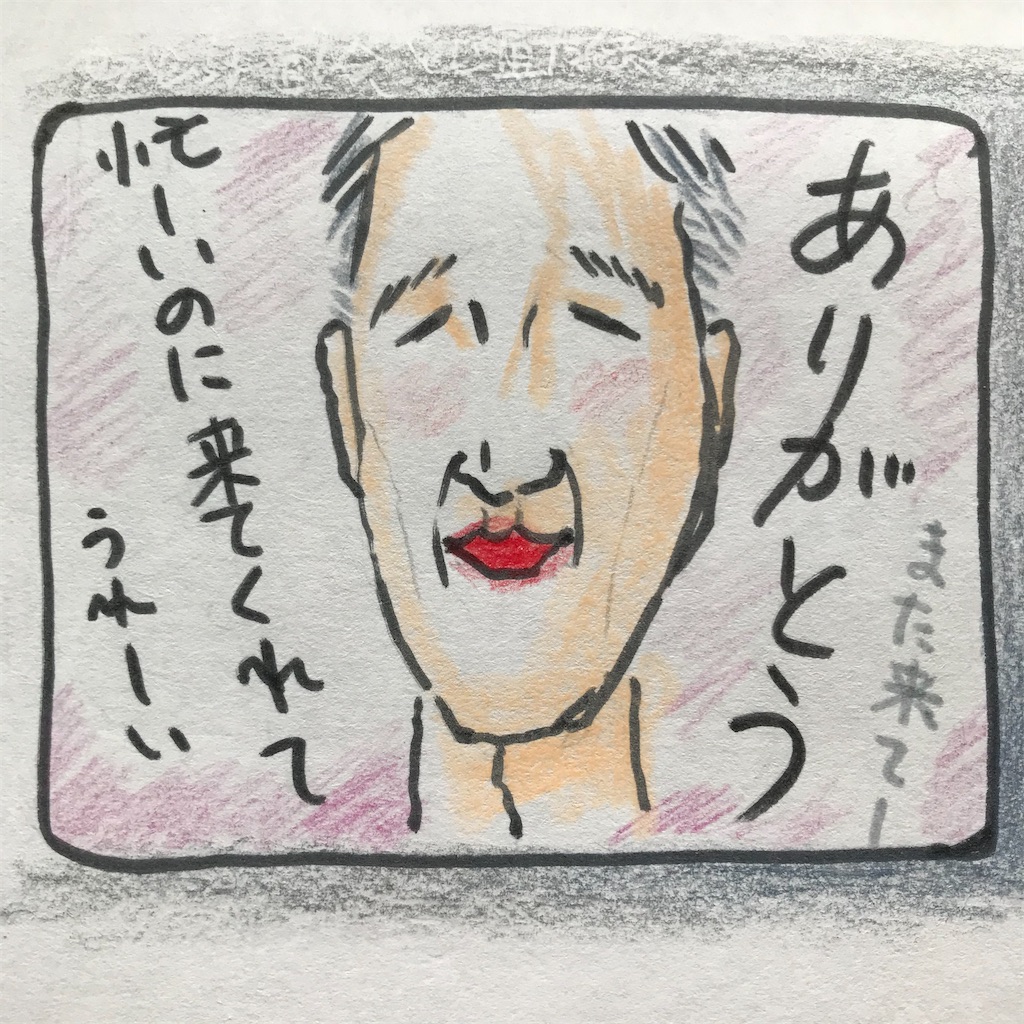 ありがとう
また来てー
忙しいのに来てくれて
うれしーい